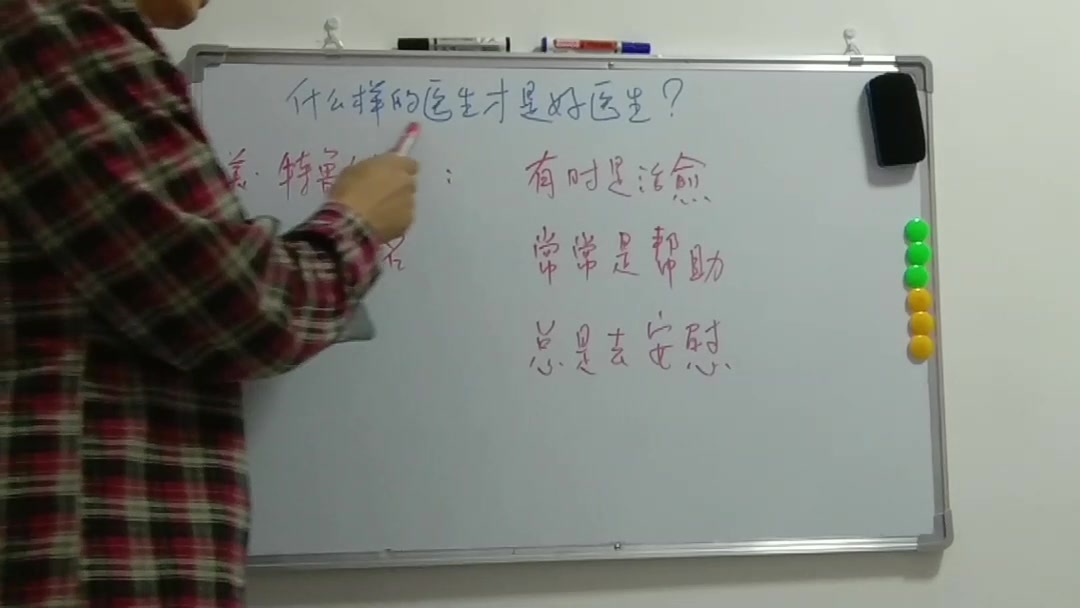 什么样的医生才是好医生?
美·特鲁 : 有时是治愈
名 常常是帮助
总是去安慰